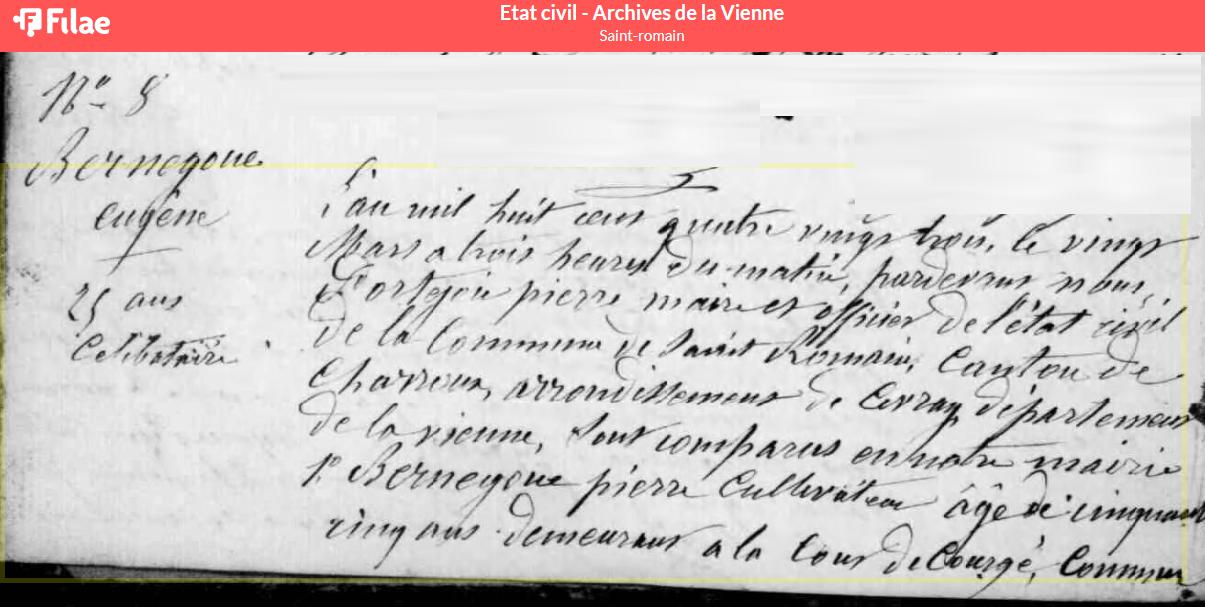 Filae
Etat civil - Archives de la Vienne
Saint-romain
No 8
Bernegoue
eugène
25 ans
Celibataire
L'an mil huit cent quatre vingt trois, le vingt
Mars a trois heures du matin, pardevant nous,
pierre maire et officier de l'état civil
de la Commune de Saint Romain, Canton de
Charroux, arrondissement de Civray département
de la vienne, sont comparus en notre mairie
1o Bernegoue pierre Cultivateur âgé de cinquante
cinq ans demeurant a la Cour de Courgé, Commune